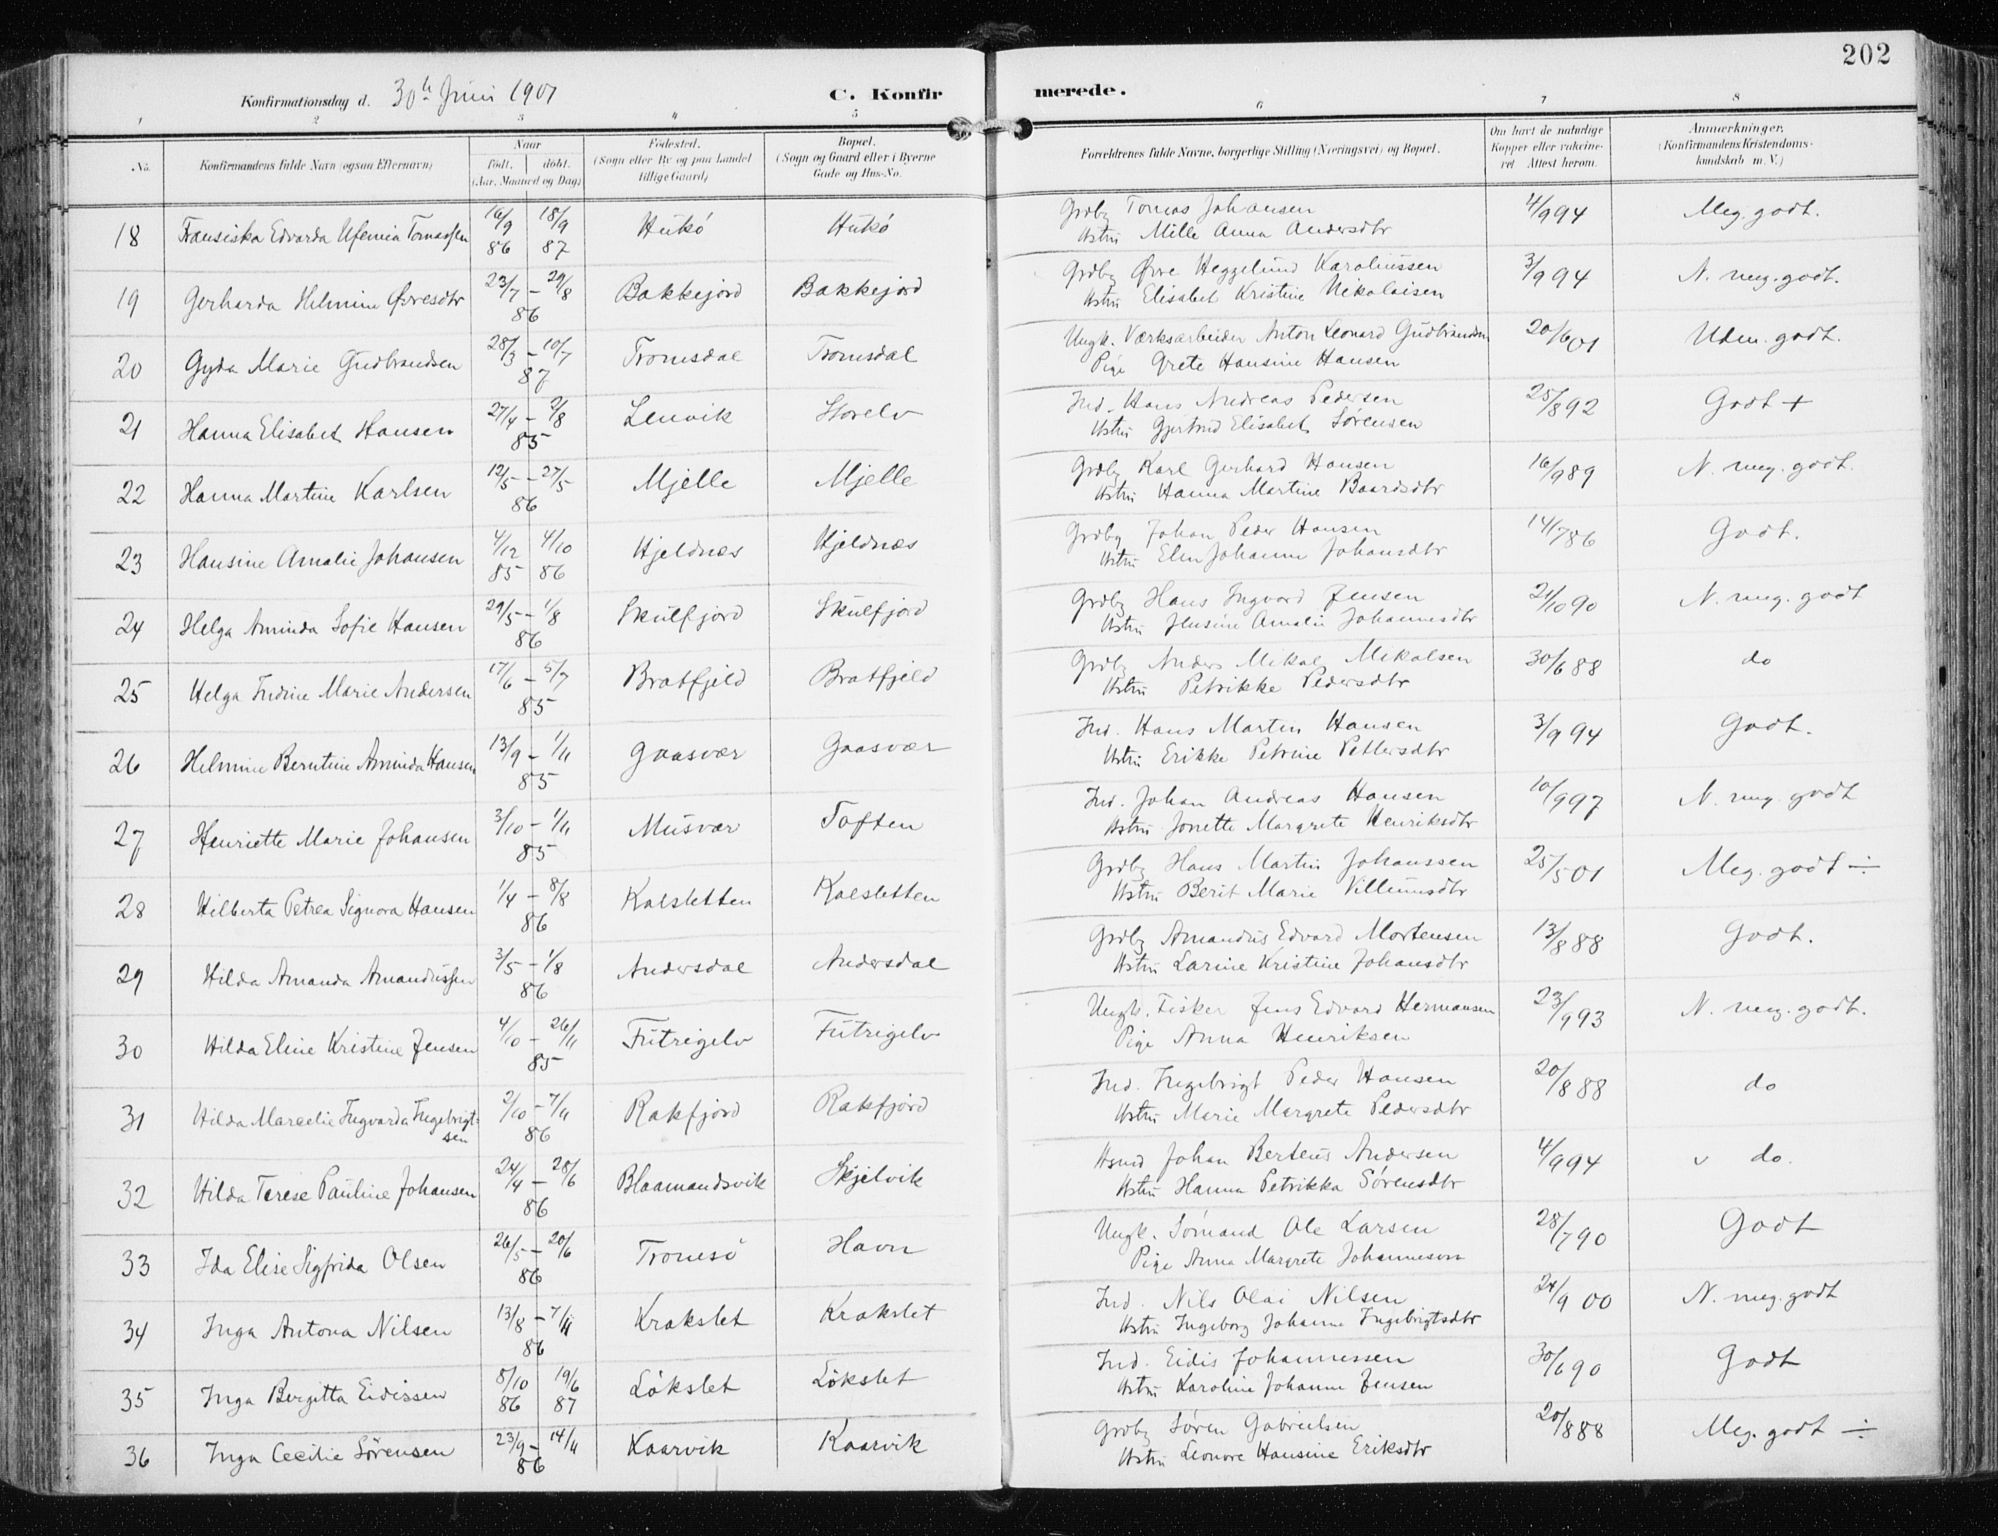 202
Konfirmationsdag d. 30th Juni 1901 C. Konfirmerede.
1 2 3 4 5 6 7 8
No. Konfirmandens fulde Navn (ogsaa Efternavn) Naar født. døbt. (Aar, Maaned og Dag) Fødested. (Sogn eller By og paa Landet tillige Gaard) Bopæl. (Sogn og Gaard eller i Byerne Gade og Hus-No. Forældrenes fulde Navne, borgerlige Stilling (Næringsvei) og Bopæl. Om havt de naturlige Kopper eller vaccineret Attest herom. Anmerkninger. (Konfirmandens Kristendomskundskab m. V.)
18 Fransiska Edvarda Ufemia Tomassen 16/9 86 18/9 87 Hukö Hukö Grdbg Tomas Johansen 4/9 94 Meg. godt.
Hstru Mille Anna Andersdtr
19 Gerharda Helmine Øvresdtr 23/7 – 29/8 86 Bakkejord Bakkejord Grdbg Øvre Heggelund Karoliussen 3/9 94 N. meg. godt.
Hstru Elisabet Kristine Nekolaisen
20 Gyda Marie Gudbrandsen 28/3 – 10/7 87 Tromsdal Tromsdal Ungk. Værksarbeider Anton Leonard Gudbrandsen 20/6 01 Udm. godt.
Pige Grete Hansine Hansen
21 Hanna Elisabet Hansen 27/4 – 2/8 85 Lenvik Storelv Ind. Hans Andreas Pedersen 25/8 92 Godt +
Hstru Gjertrud Elisabet Sørensen
22 Hanna Martine Karlsen 12/5 – 27/5 86 Mjelle Mjelle Grdbg Karl Gerhard Hansen 16/9 89 N. meg. godt.
Hstru Hanna Martine Baardsdtr
23 Hansine Amalie Johansen 4/12 85 4/10 86 Hjeldnæs Hjeldnæs Grdbg Johan Peder Hansen 14/7 86 Godt.
Hstru Elen Johanna Johansdtr
24 Helga Aminda Sofie Hansen 29/5 – 1/8 86 Skulfjord Skulfjord Grdbg Hans Ingvard Jensen 21/10 90 N. meg. godt
Hstru Jensine Amalie Johannesdtr
25 Helga Indine Marie Andersen 17/6 – 5/7 85 Bratfjeld Bratfjeld Grdbg Anders Mikal Mikalsen 30/6 88 do
Hstru Petrikke Pedersdtr
26 Helmine Berntine Aminda Hansen 13/9 – 1/11 85 Gaasvær Gaasvær Ind. Hans Martin Hansen 3/9 94 Godt.
Hstru Erikke Petrine Pettersdtr
27 Henriette Marie Johansen 3/10 – 1/11 85 Musvær Toften Ind. Johan Andreas Hansen 10/9 97 N. meg. godt
Hstru Jonette Margrete Henriksdtr
28 Hilberta Petrea Signora Hansen 1/4 – 8/8 86 Kalsletten Kalsletten Grdbg Hans Martin Johanssen 25/5 01 Meg. godt ÷
Hstru Berit Marie Villumsdtr
29 Hilda Amanda Amandussen 3/5 – 1/8 86 Andersdal Andersdal Grdbg Amandus Edvard Mortensen 13/8 88 Godt.
Hstru Larine Kristine Johansdtr
30 Hilda Eline Kristine Jensen 4/10 – 26/11 85 Futrigelv Futrigelv Ungk. Fisker Jens Edvard Hermansen 23/9 93 N. meg. godt.
Pige Anna Henriksen
31 Hilda Marcelie Ingvarda Ingebrigtsen 2/10 – 7/11 86 Rakfjord Rakfjord Ind. Ingebrigt Peder Hansen 20/8 88 do
Hstru Marie Margrete Pedersdtr
32 Hilda Terese Pauline Johansen 24/4 – 28/6 86 Blaamandsvik Skjelvik Hsmd Johan Berteus Andersen 4/9 94 v do.
Hstru Hanna Petrikka Sörensdtr
33 Ida Elise Sigfrida Olsen 26/5 – 20/6 86 Tromsö Havn Ungk. Sömand Ole Larsen 28/7 90 Godt
Pige Anna Margrete Johannesen
34 Inga Antona Nilsen 13/8 – 7/11 86 Krakslet Krakslet Ind. Nils Olai Nilsen 24/9 00 N. meg. godt
Hstru Ingeborg Johanna Ingebrigtsdtr
35 Inga Bergitta Eidissen 8/10 86 19/6 87 Lökslet Lökslet Ind. Eidis Johannessen 30/6 90 Godt
Hstru Karoline Johanna Jensen
36 Inga Cecilie Sörensen 23/9 – 14/11 86 Kaarvik Kaarvik Grdbg Sören Gabrielsen 20/8 88 Meg. godt ÷
Hstru Leonore Hansine Eriksdtr